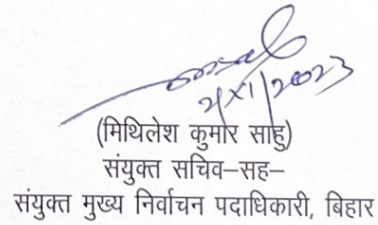 2/XI/2023
(मिथिलेश कुमार साहु)
संयुक्त सचिव–सह–
संयुक्त मुख्य निर्वाचन पदाधिकारी, बिहार